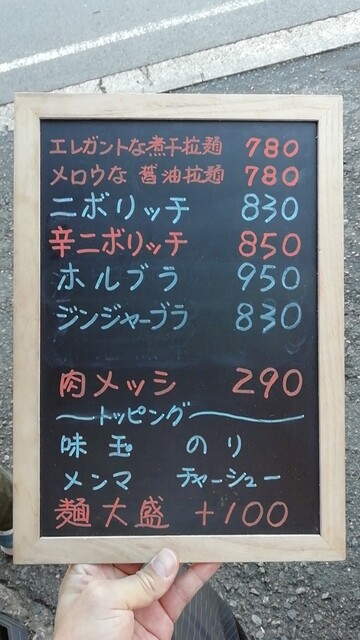 エレガントな煮干拉麺 780
メロウな 醤油拉麺 780
ニボリッチ 830
辛ニボリッチ 850
ホルブラ 950
ジンジャーブラ 830
肉メッシ 290
トッピング
味玉 のり
メンマ チャーシュー
麺大盛 +100